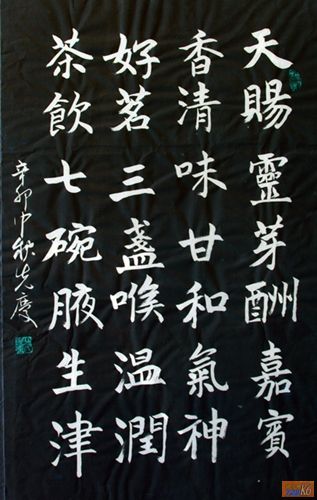 天賜靈芽酬嘉賓
香清味甘和氣神
好茗三盞喉温潤
茶飲七碗腋生津
辛卯中秋先慶
K6